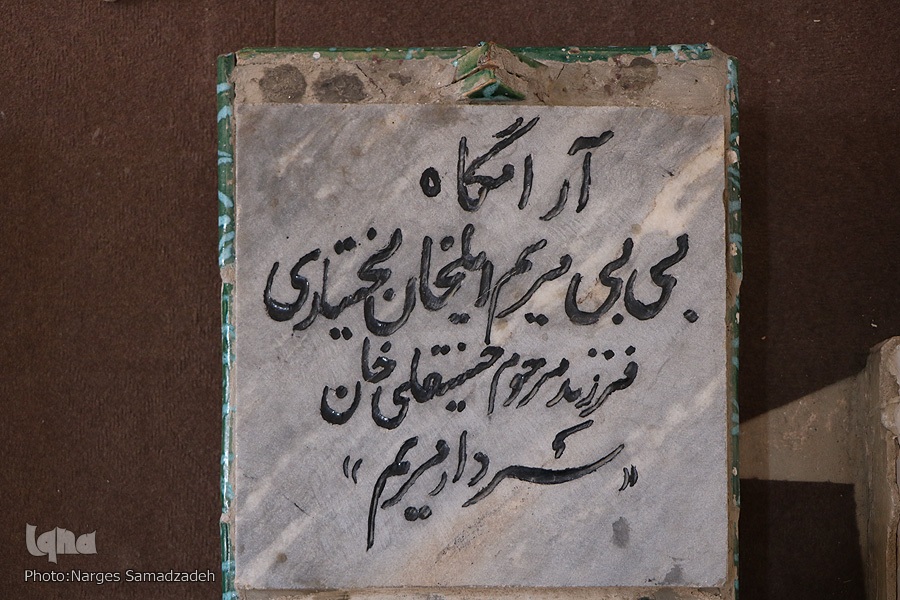 آرامگاه
بی بی مریم ایلخان بختیاری
فرزند مرحوم حسینقلی خان
«سردار مریم»
Iqna
Photo:Narges Samadzadeh